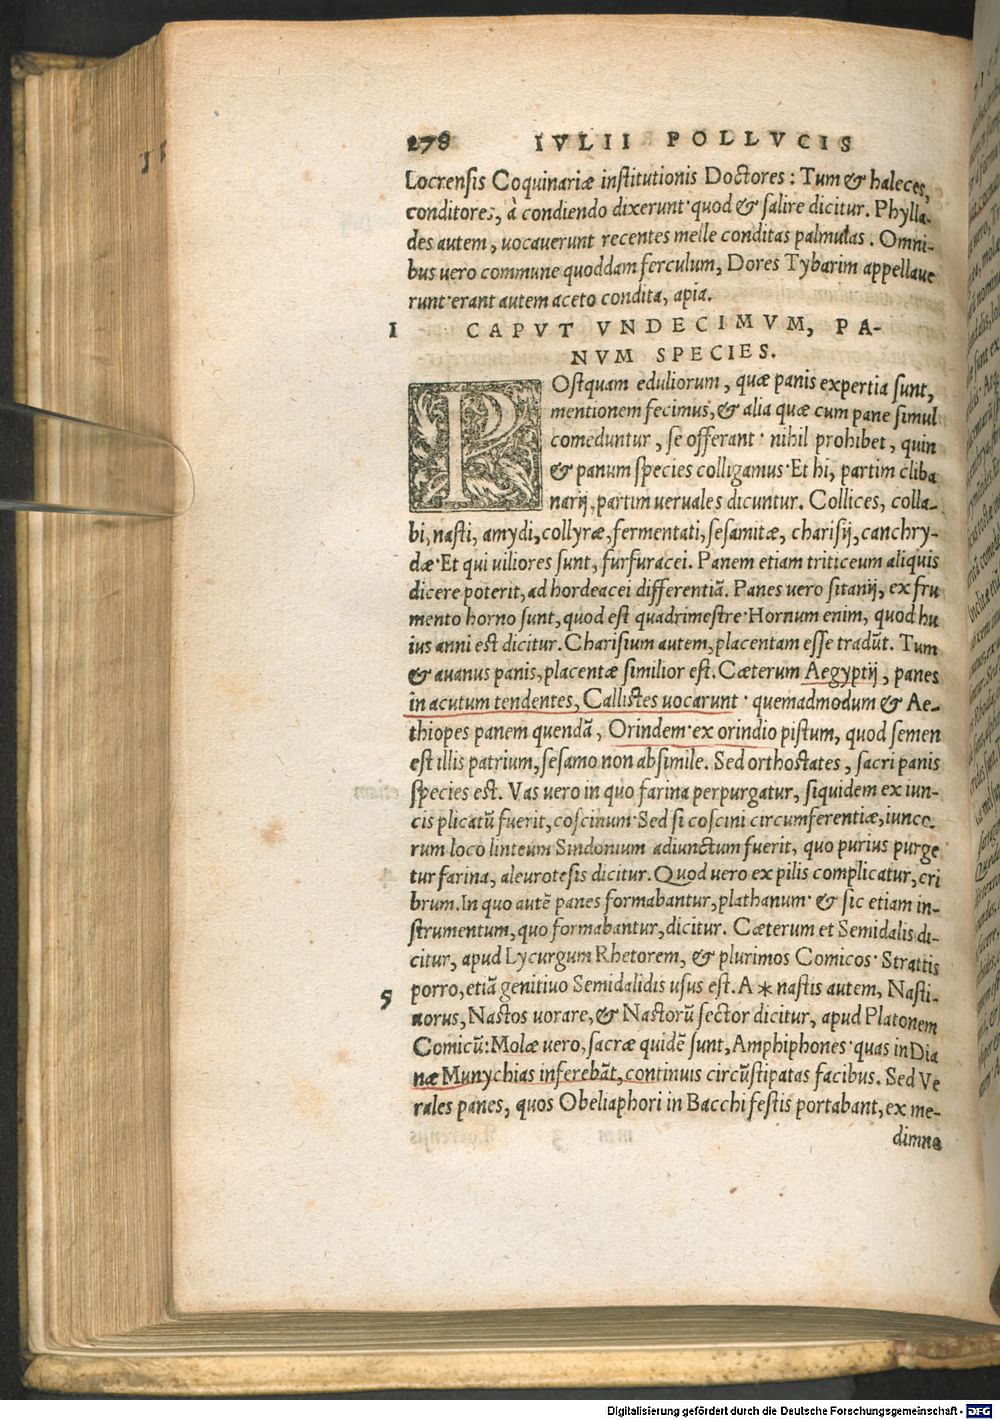 278 IVLII POLLVCIS
Locrensis Coquinariæ institutionis Doctores: Tum & haleces,
conditores, à condiendo dixerunt·quod & salire dicitur. Phylla-
des autem, uocauerunt recentes melle conditas palmulas. Omni-
bus uero commune quoddam ferculum, Dores Tybarim appellaue
runt·erant autem aceto condita, apia.
I CAPVT VNDECIMVM, PA-
NVM SPECIES.
POstquam eduliorum, quæ panis expertia sunt,
mentionem fecimus, & alia quæ cum pane simul
comeduntur, se offerant· nihil prohibet, quin
& panum species colligamus·Et hi, partim cliba
narij, partim ueruales dicuntur. Collices, colla-
bi, nasti, amydi, collyræ, fermentati, sesamitæ, charisij, canchry-
dæ·Et qui uiliores sunt, furfuracei. Panem etiam triticeum aliquis
dicere poterit, ad hordeacei differentiã. Panes uero sitanij, ex fru
mento horno sunt, quod est quadrimestre·Hornum enim, quod hu
ius anni est dicitur. Charisium autem, placentam esse tradũt. Tum
& auanus panis, placentæ similior est. Cæterum Aegyptij, panes
in acutum tendentes, Callistes uocarunt· quemadmodum & Ae-
thiopes panem quendã, Orindem·ex orindio pistum, quod semen
est illis patrium, sesamo non absimile. Sed orthostates, sacri panis
species est. Vas uero in quo farina perpurgatur, siquidem ex iun-
cis plicatũ fuerit, coscinum·Sed si coscini circumferentiæ, iunco-
rum loco linteum Sindonium adiunctum fuerit, quo purius purge
tur farina, aleurotesis dicitur. Quod uero ex pilis complicatur, cri
brum. In quo autẽ panes formabantur, plathanum· & sic etiam in-
strumentum, quo formabantur, dicitur. Cæterum et Semidalis di-
citur, apud Lycurgum Rhetorem, & plurimos Comicos· Strattis
porro, etiã genitiuo Semidalidis usus est. A * nastis autem, Nasti-
5 uorus, Nastos uorare, & Nastorũ sector dicitur, apud Platonem
Comicũ: Molæ uero, sacræ quidẽ sunt, Amphiphones·quas in Dia
næ Munychias inferebãt, continuis circũstipatas facibus. Sed Ve
rales panes, quos Obeliaphori in Bacchi festis portabant, ex me-
dimno
Digitalisierung gefördert durch die Deutsche Forschungsgemeinschaft - DFG